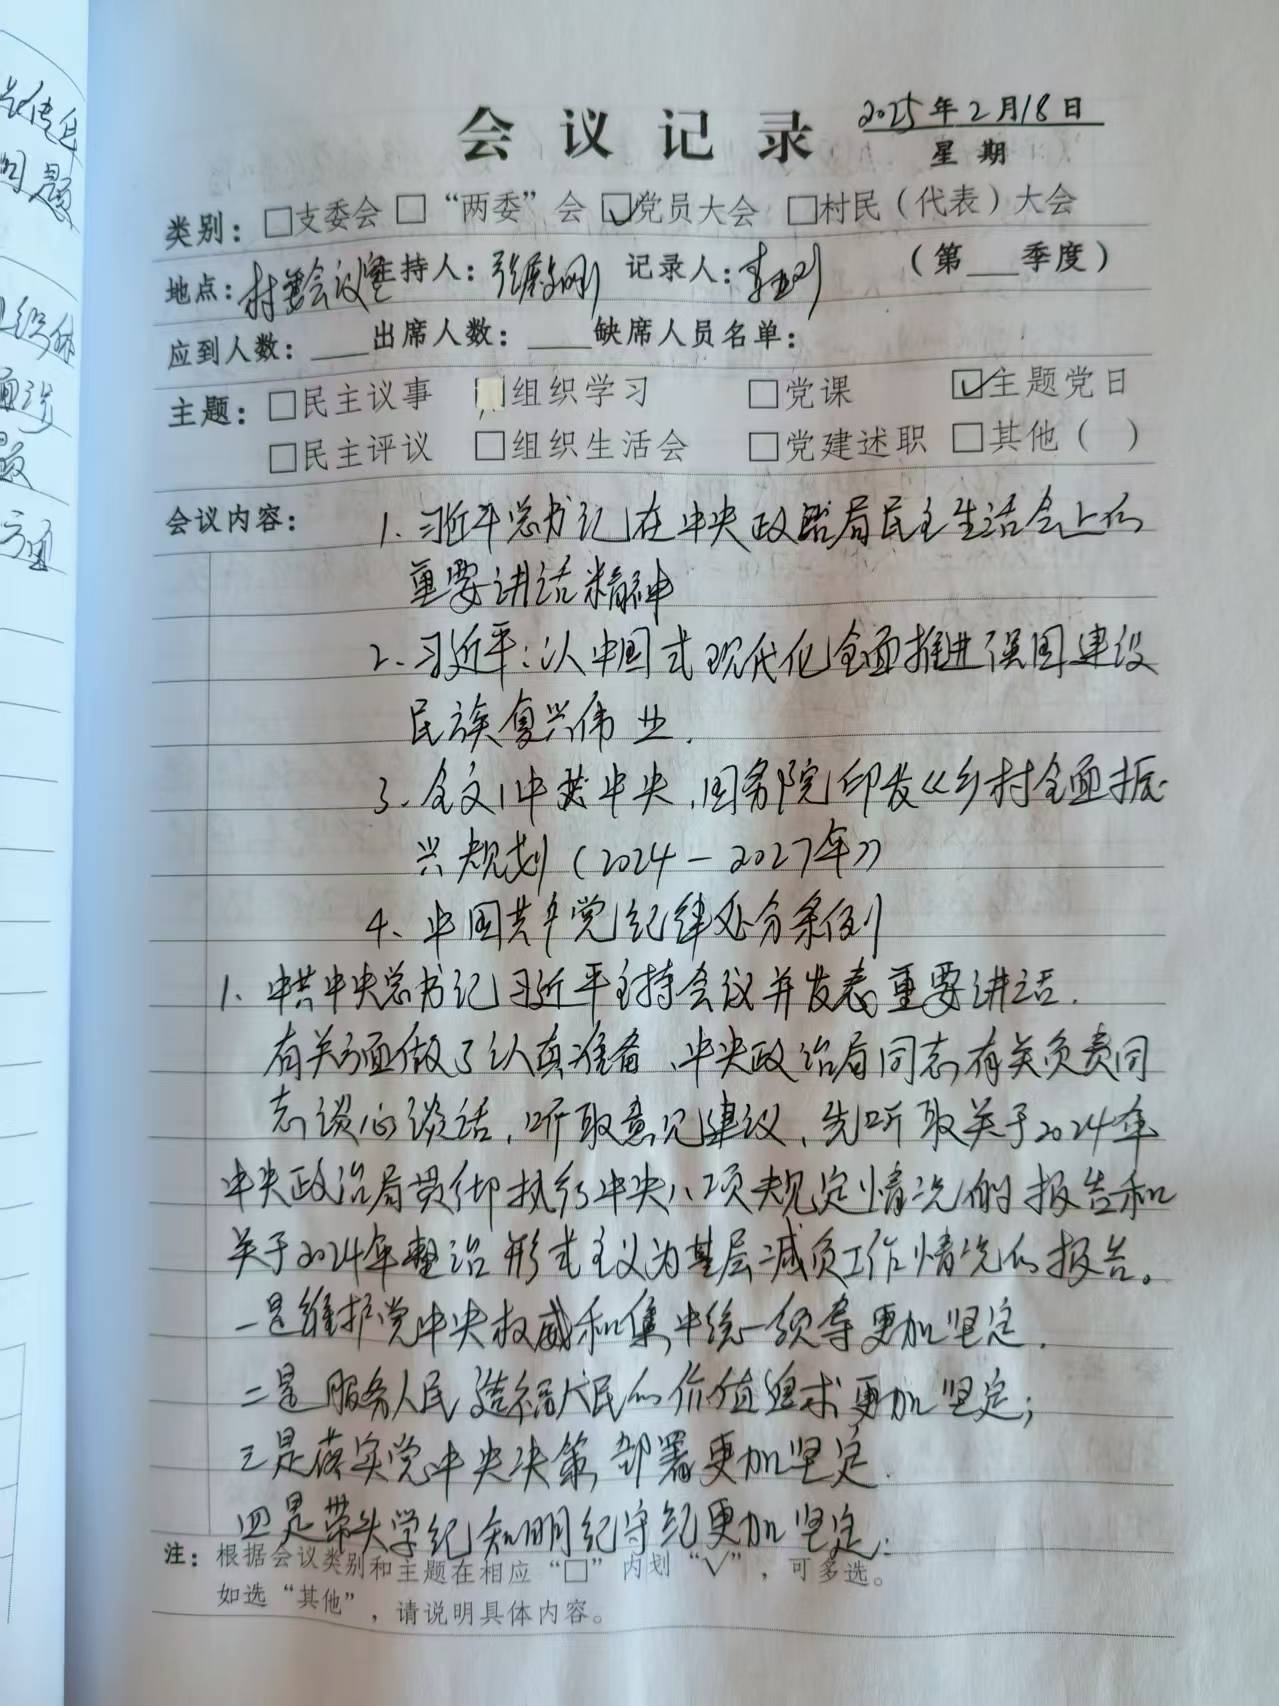 会议记录 2025年2月18日
星期
类别：□支委会 □“两委”会 ☑党员大会 □村民（代表）大会
地点：村委会议室 主持人：张 刚 记录人：李 （第___季度）
应到人数：___ 出席人数：___ 缺席人员名单：
主题：□民主议事 □组织学习 □党课 ☑主题党日
□民主评议 □组织生活会 □党建述职 □其他（ ）
会议内容： 1、习近平总书记在中央政治局民主生活会上的
重要讲话精神
2、习近平：以中国式现代化全面推进强国建设
民族复兴伟业.
3、全文|中共中央，国务院印发《乡村全面振
兴规划（2024－2027年》
4、中国共产党纪律处分条例
1、中共中央总书记习近平主持会议并发表重要讲话.
有关方面做了认真准备、中央政治局同志有关负责同
志谈心谈话，听取意见建议，先听取关于2024年
中央政治局贯彻执行中央八项规定情况的报告和
关于2024年整治形式主义为基层减负工作情况的报告。
一是维护党中央权威和集中统一领导更加坚定.
二是服务人民造福人民的价值追求更加坚定；
三是落实党中央决策部署更加坚定.
四是带头学纪知明纪守纪更加坚定：
注：根据会议类别和主题在相应“□”内划“√”，可多选。
如选“其他”，请说明具体内容。